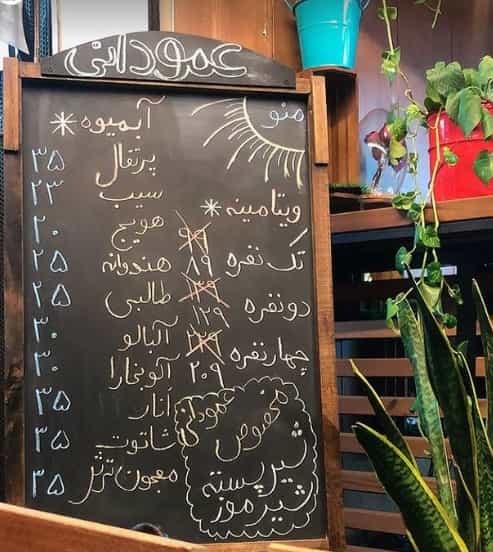 عمودانی
منو
* آبمیوه
پرتقال ۳۵
سیب ۲۳
هویج ۲۰
هندوانه ۲۵
طالبی ۲۵
آلبالو ۳۰
آلوبخارا ۳۰
انار ۳۵
شاتوت ۳۵
معجون ۳۵
ویتامینه *
تک نفره ۸۹
دونفره ۱۲۹
چهارنفره ۲۰۹
مخصوص عمودانی
شیرپسته
شیرموز